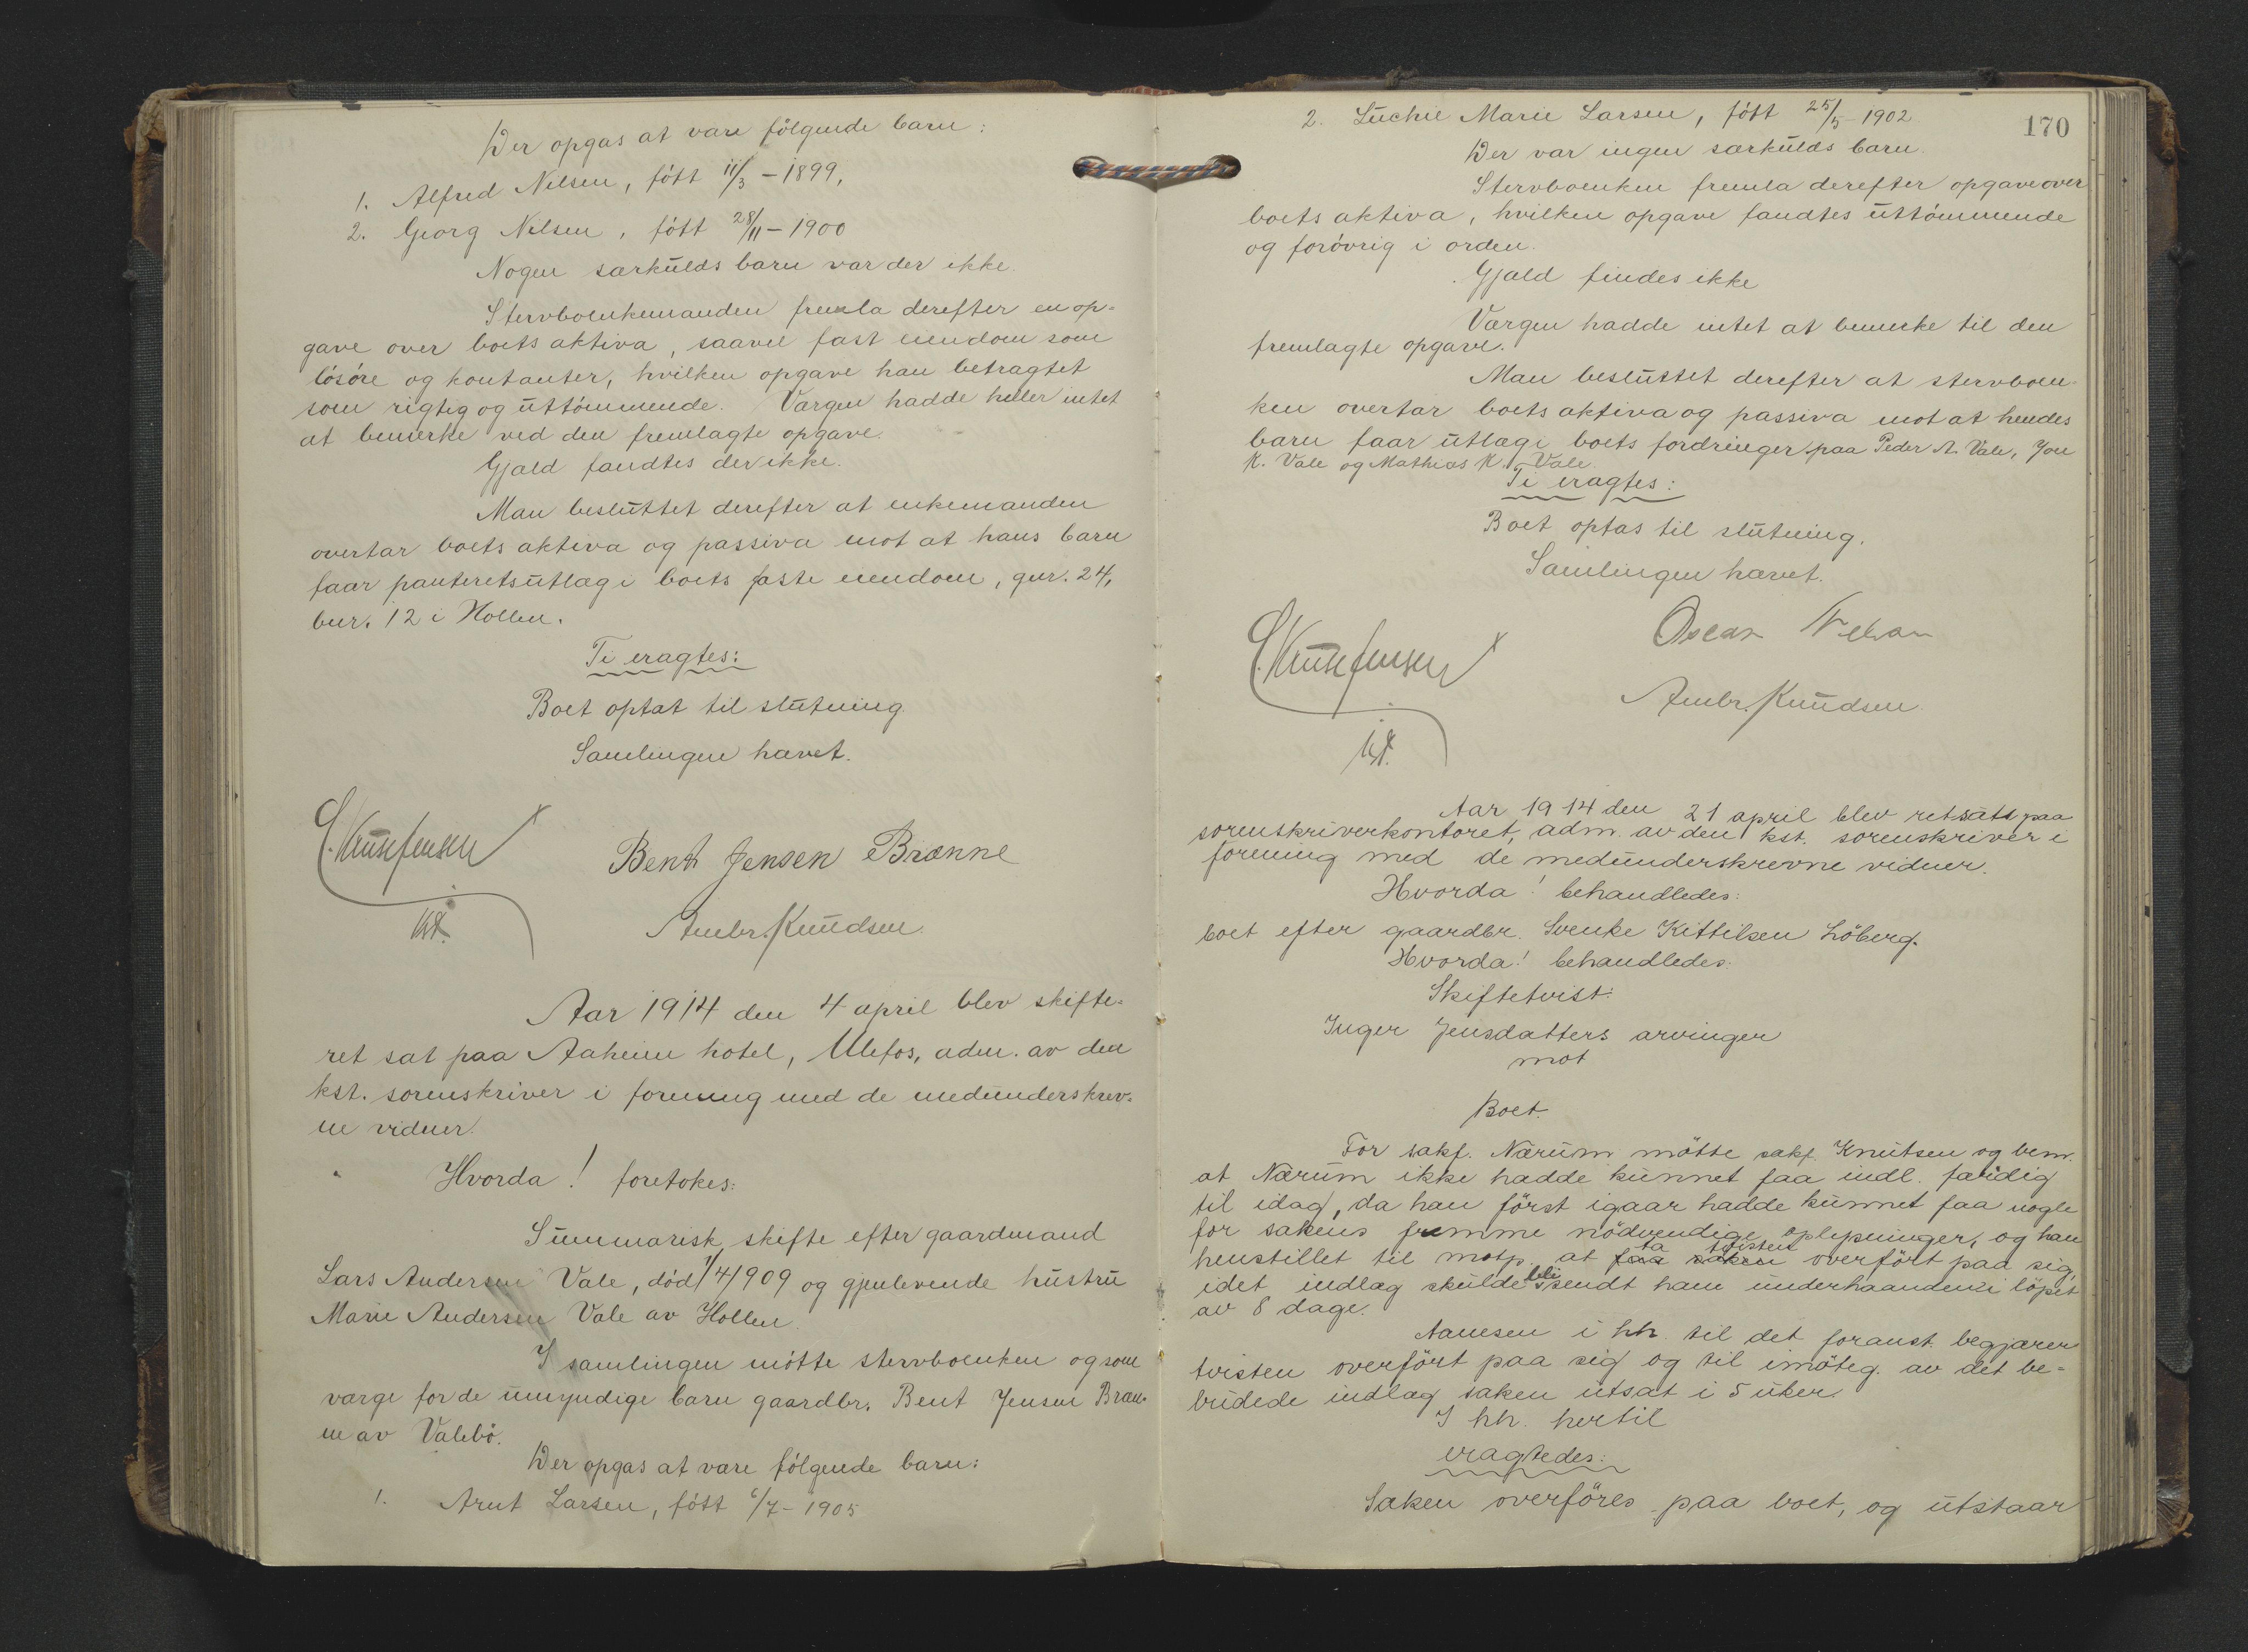 Der opgas at være følgende barn:
1. Alfred Nilsen, født 11/3 - 1899,
2. Georg Nilsen, født 28/11 - 1900
Nogen særkulds barn var der ikke.
Stervboenkemanden fremla derefter en op-
gave over boets aktiva, saavel fast eiendom som
løsøre og kontanter, hvilken opgave han betragtet
som rigtig og uttømmende. Værgen hadde heller intet
at bemerke ved den fremlagte opgave.
Gjæld fandtes der ikke.
Man besluttet derefter at enkemanden
overtar boets aktiva og passiva mot at hans barn
faar panteretsutlæg i boets faste eiendom, gnr. 24,
bnr. 12 i Hollen.
Ti eragtes:
Boet optat til slutning.
Samlingen hævet.
Kruse Jensen
kst.
Bent Jensen Brænne
Ambr. Knudsen
Aar 1914 den 4 april blev skifte-
ret sat paa Aaheim hotel, Ulefos, adm. av den
kst. sorenskriver i forening med de medunderskrev-
ne vidner.
Hvorda! foretokes:
Summarisk skifte efter gaardmand
Lars Andersen Vale, død 1/4 1909 og gjenlevende hustru
Marie Andersen Vale av Hollen.
I samlingen møtte stervboenken og som
værge for de umyndige barn gaardbr. Bent Jensen Bræn-
ne av Valebø.
Der opgas at være følgende barn:
1. Arnt Larsen, født 6/7 - 1905
170
2. Luchie Marie Larsen, født 25/5 - 1902
Der var ingen særkulds barn.
Stervboenken fremla derefter opgave over
boets aktiva, hvilken opgave fandtes uttømmende
og forøvrig i orden.
Gjæld findes ikke
Værgen hadde intet at bemerke til den
fremlagte opgave.
Man besluttet derefter at stervboen-
ken overtar boets aktiva og passiva mot at hendes
barn faar utlæg i boets fordringer paa Peder A. Vale, Jon
K. Vale og Mathias K. Vale.
Ti eragtes:
Boet optas til slutning.
Samlingen hævet.
Kruse Jensen
kst.
Oscar Nilsen
Ambr. Knudsen
Aar 1914 den 21 april blev ret satt paa
sorenskriverkontoret, adm. av den kst. sorenskriver i
forening med de medunderskrevne vidner.
Hvorda! behandledes:
boet efter gaardbr. Svenke Kittilsen Løberg.
Hvorda! behandledes:
Skiftetvist:
Inger Jensdatters arvinger
mot
Boet.
For sakf. Nærum møtte sakf. Knutsen og bem.
at Nærum ikke hadde kunnet faa indl. færdig
til idag, da han først igaar hadde kunnet faa nogle
for sakens fremme nødvendige oplysninger, og han
henstillet til motp. at ta tvisten overført paa sig,
idet indlæg skulde bli sendt ham underhaanden i løpet
av 8 dage.
Aamesen i hh. til det foranst. begjærer
tvisten overført paa sig og til imøteg. av det be-
budede indlæg saken utsat i 5 uker.
I hh. hertil
eragtedes:
Saken overføres paa boet, og utstaar